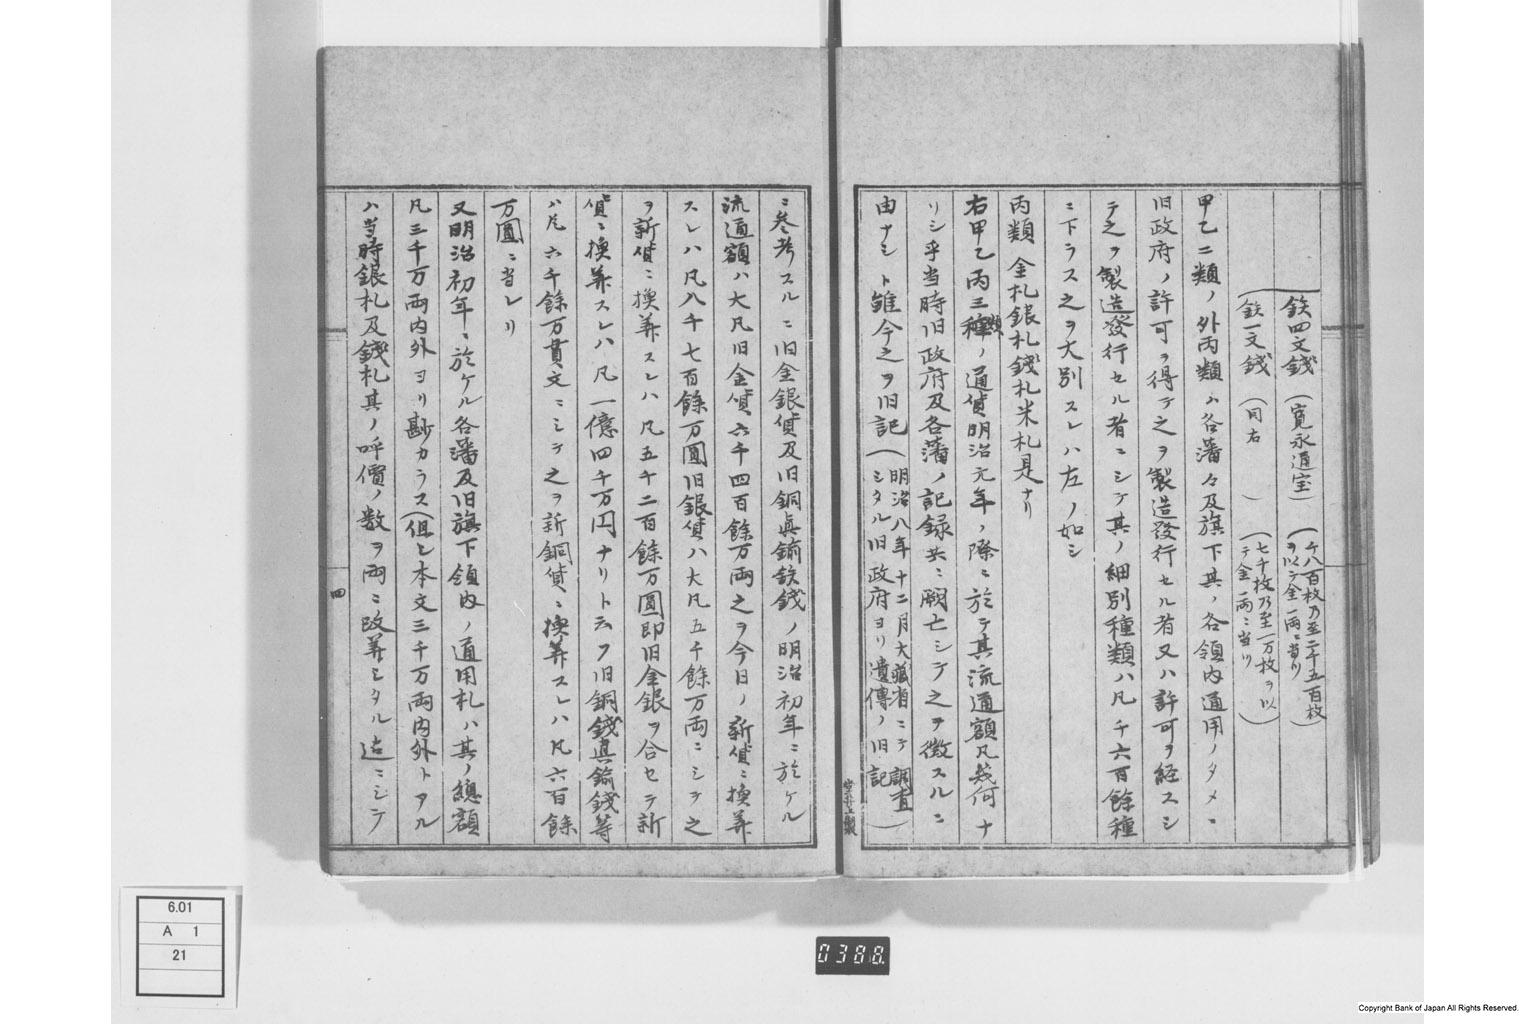 鉄四文錢(寛永通宝)(千八百枚乃至二千五百枚ヲ以テ金一両ニ当リ)
鉄一文錢(同右)(七千枚乃至一万枚ヲ以テ金一両ニ当リ)
甲乙二類ノ外丙類ハ各藩々及旗下其ノ各領内通用ノタメニ
旧政府ノ許可ヲ得テ之ヲ製造發行セル者又ハ許可ヲ経スシ
テ之ヲ製造發行セル者ニシテ其ノ細別種類ハ凡千六百餘種
ニ下ラス之ヲ大別スレハ左ノ如シ
丙類 金札銀札錢札米札是ナリ
右甲乙丙三類ノ通貨明治元年ノ際ニ於テ其流通額凡幾何ナ
リシ乎当時旧政府及各藩ノ記録共ニ闕亡シテ之ヲ徴スルニ
由ナシト雖今之ヲ旧記(明治八年十二月大藏省ニテ調査シタル旧政府ヨリ遺傳ノ旧記)
ニ参考スルニ旧金銀貨及旧銅眞鍮鉄錢ノ明治初年ニ於ケル
流通額ハ大凡旧金貨六千四百餘万両之ヲ今日ノ新貨ニ換算
スレハ凡八千七百餘万圓旧銀貨ハ大凡五千餘万両ニシテ之
ヲ新貨ニ換算スレハ凡五千二百餘万圓即旧金銀ヲ合セテ新
貨ニ換算スレハ凡一億四千万円ナリト云フ旧銅錢眞鍮錢等
ハ凡六千餘万貫文ニシテ之ヲ新銅貨ニ換算スレハ凡六百餘
万圓ニ当レリ
又明治初年ニ於ケル各藩及旧旗下領内ノ通用札ハ其ノ總額
凡三千万両内外ヨリ尠カラス(但シ本文三千万両内外トアル
ハ当時銀札及錢札其ノ呼價ノ数ヲ両ニ改算シタル迠ニシテ
四
6.01
A 1
21
0388
Copyright Bank of Japan All Rights Reserved.